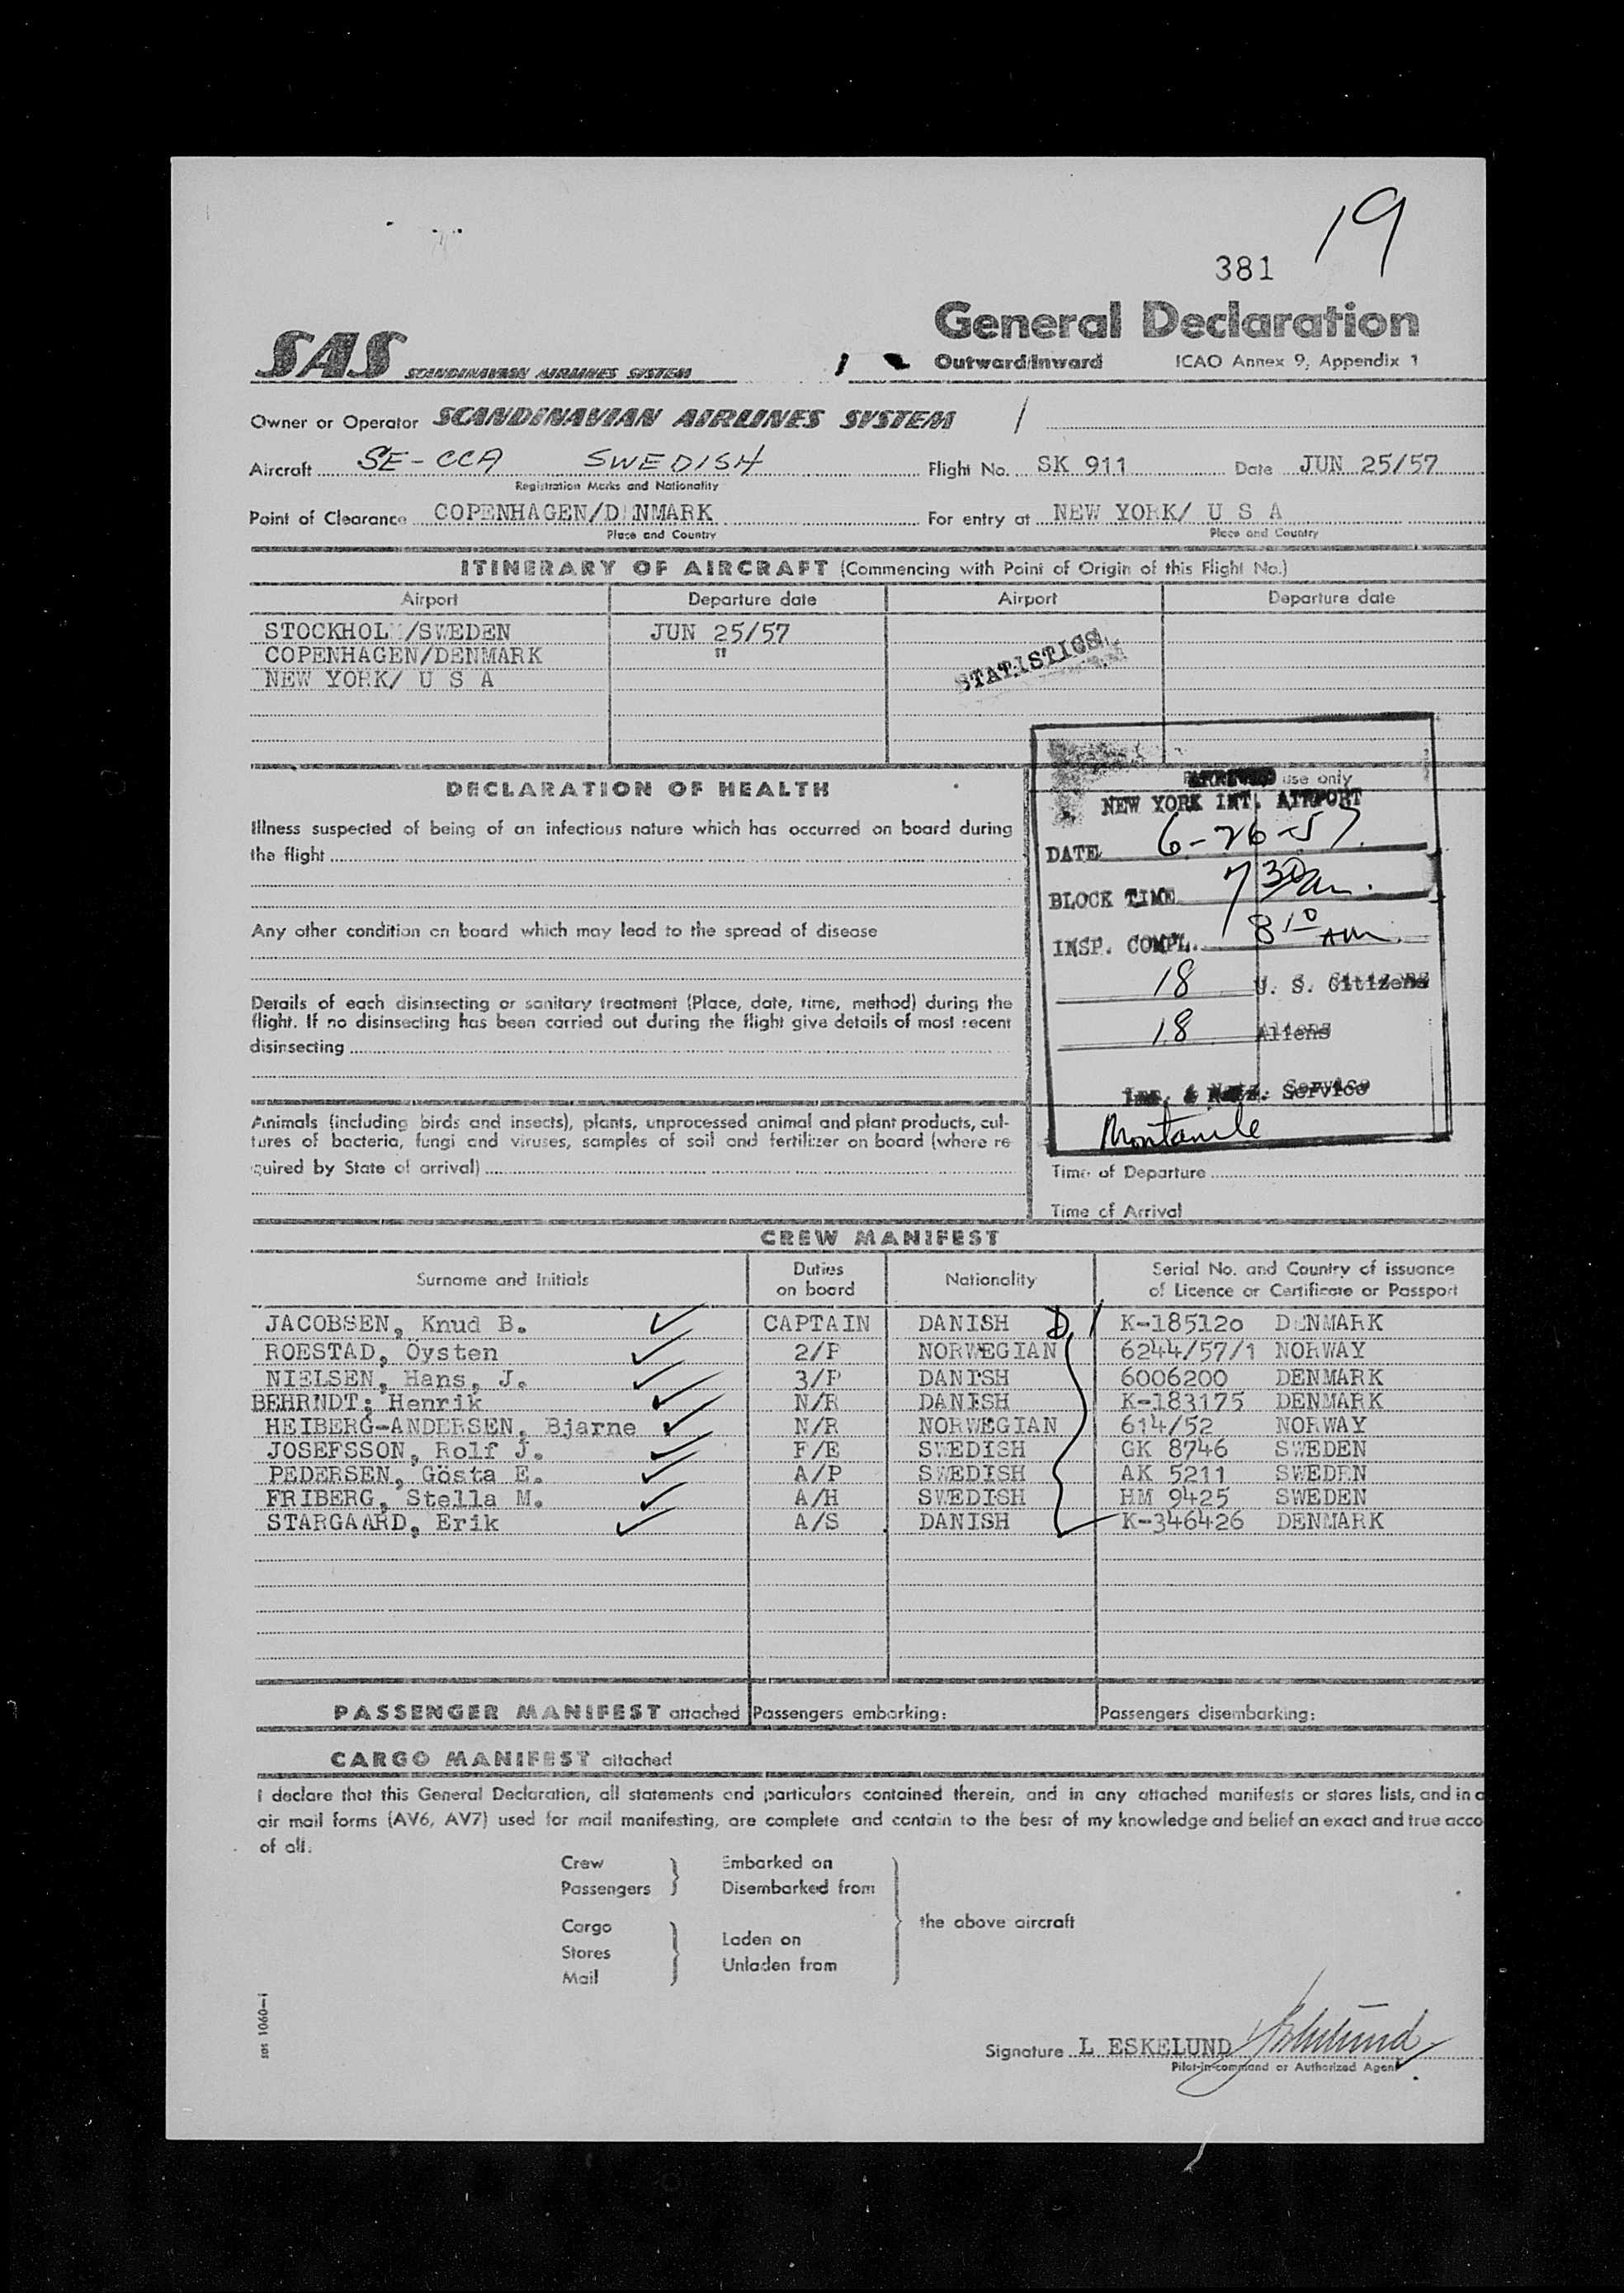 19
381
General Declaration
SAS SCANDINAVIAN AIRLINES SYSTEM
Outward/Inward ICAO Annex 9, Appendix 1
Owner or Operator SCANDINAVIAN AIRLINES SYSTEM
Aircraft SE-CCA SWEDISH Flight No. SK 911 Date JUN 25/57
Registration Marks and Nationality
Point of Clearance COPENHAGEN/DENMARK For entry at NEW YORK/ U S A
Place and Country Place and Country
ITINERARY OF AIRCRAFT (Commencing with Point of Origin of this Flight No.)
Airport Departure date Airport Departure date
STOCKHOLM/SWEDEN JUN 25/57
COPENHAGEN/DENMARK "
NEW YORK/ U S A
STATISTICS
DECLARATION OF HEALTH
Illness suspected of being of an infectious nature which has occurred on board during
the flight
Any other condition on board which may lead to the spread of disease
Details of each disinsecting or sanitary treatment (Place, date, time, method) during the
flight. If no disinsecting has been carried out during the flight give details of most recent
disinsecting
Animals (including birds and insects), plants, unprocessed animal and plant products, cul-
tures of bacteria, fungi and viruses, samples of soil and fertilizer on board (where re-
quired by State of arrival)
ARRIVED use only
NEW YORK INT. AIRPORT
DATE 6-26-57
BLOCK TIME 7 30 am.
INSP. COMPL. 8 10 AM.
18 U. S. Citizens
18 Aliens
Im. & Natz. Service
Time of Departure
Time of Arrival
CREW MANIFEST
Surname and Initials Duties on board Nationality Serial No. and Country of issuance of Licence or Certificate or Passport
JACOBSEN, Knud B. CAPTAIN DANISH D1 K-185120 DENMARK
ROESTAD, Öysten 2/P NORWEGIAN 6244/57/1 NORWAY
NIELSEN, Hans, J. 3/P DANISH 6006200 DENMARK
BEHRNDT; Henrik N/R DANISH K-183175 DENMARK
HEIBERG-ANDERSEN, Bjarne N/R NORWEGIAN 614/52 NORWAY
JOSEFSSON, Rolf J. F/E SWEDISH GK 8746 SWEDEN
PEDERSEN, Gösta E. A/P SWEDISH AK 5211 SWEDEN
FRIBERG, Stella M. A/H SWEDISH HM 9425 SWEDEN
STARGAARD, Erik A/S DANISH K-346426 DENMARK
PASSENGER MANIFEST attached Passengers embarking: Passengers disembarking:
CARGO MANIFEST attached
I declare that this General Declaration, all statements and particulars contained therein, and in any attached manifests or stores lists, and in a
air mail forms (AV6, AV7) used for mail manifesting, are complete and contain to the best of my knowledge and belief an exact and true acco
of all.
Crew Embarked on
Passengers Disembarked from
the above aircraft
Cargo
Stores Laden on
Mail Unladen from
sas 1060-i
Signature L ESKELUND Eskelund
Pilot-in-command or Authorized Agent